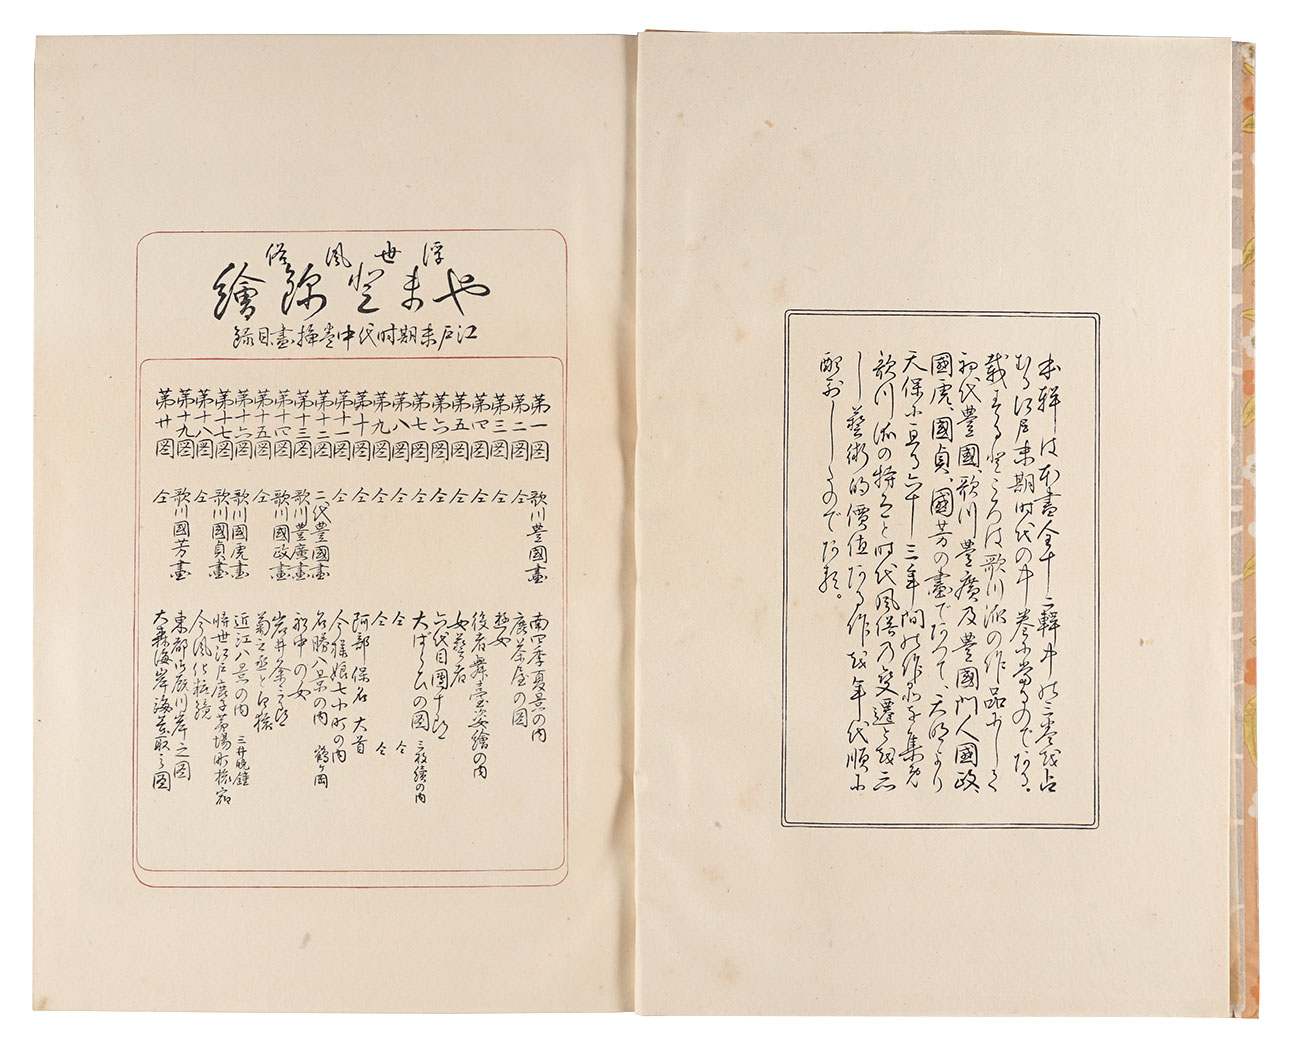 本輯は本畫全十二輯中の三巻を占
むる江戸末期時代の中巻に當るのである。
載する處ころは歌川派の作品にして
初代豊國歌川豊廣及豊國門人國政、
國虎、國貞、國芳の畫であつて、天明より
天保に亘る六十三年間の作品を集め
歌川派の特色と時代風俗の變遷を
し藝術的價値ある作を年代順に
配列したものである。
浮世風俗
やまと錦繪
江戸末期時代中巻挿畫目録
第一図 歌川豊國畫 南四季夏景の内
第二図 仝 鹿茶屋の図
第三図 仝
第四図 仝 役者舞臺姿繪の内
第五図 仝 女藝者
第六図 仝 六代目團十郎
第七図 仝 の図 三枚續の内
第八図 仝 仝 仝
第九図 仝 仝 仝
第十図 仝 阿部保名 大首
第十一図 仝 今様娘七小町の内
第十二図 二代豊國畫 名勝八景の内 鶴ヶ岡
第十三図 歌川豊廣畫 の女
第十四図 歌川國政畫 岩井粂三郎
第十五図 仝 菊之丞と
第十六図 歌川國虎畫 近江八景の内 三井晩鐘
第十七図 歌川國貞畫 時世江戸鹿子茅場町
第十八図 仝 今風化粧鏡
第十九図 歌川國芳畫 東都御厩川岸之図
第廿図 仝 大森海岸海苔取之図